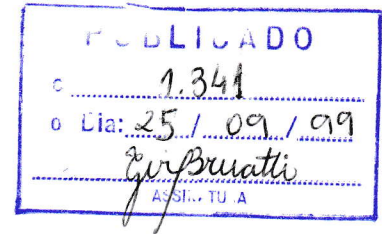 PUBLICADO
1.341
Dia: 25 / 09 / 99
ASSINATURA